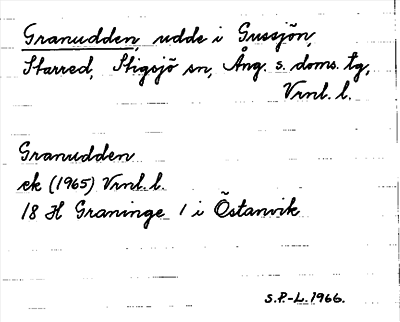 Granudden, udde i Gussjön,
Starred, Stigsjö sn, Ång. s. doms. tg,
Vrnl. l.
Granudden
ek (1965) Vrnl. l.
18 H Graninge 1 i Östanvik
S.P.-L. 1966.